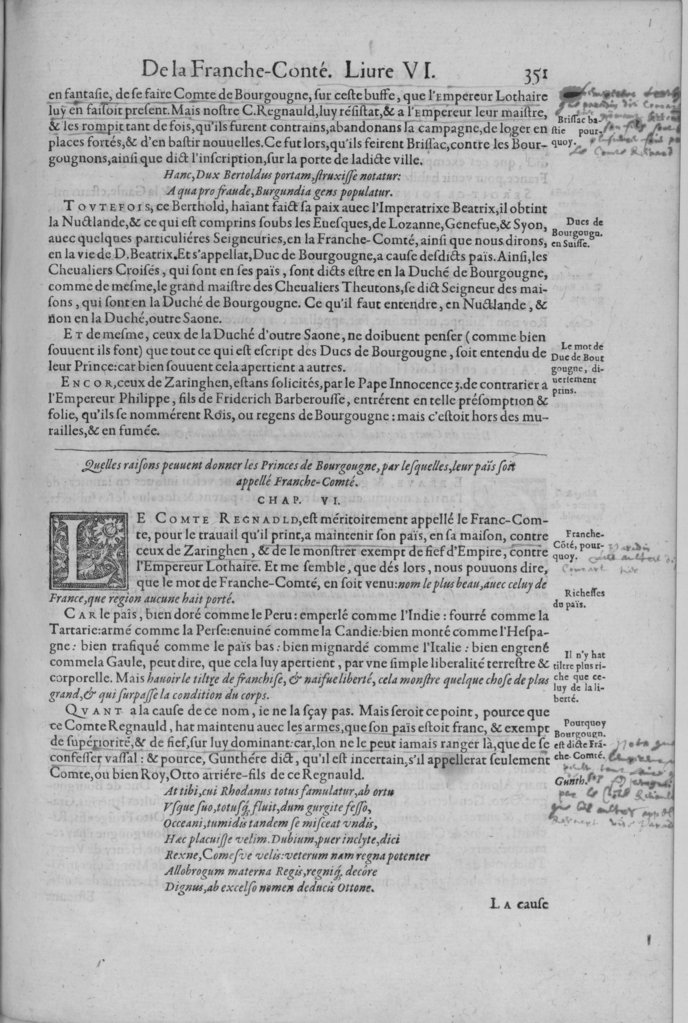 De la Franche-Conté. Liure VI. 351
en fantasie, de se faire Comte de Bourgougne, sur ceste buffe, que l'Empereur Lothaire
luy en faisoit present. Mais nostre C. Regnauld, luy résistāt, & a l'Empereur leur maistre,
& les rompit tant de fois, qu'ils furent contrains, abandonans la campagne, de loger en
places fortés, & d'en bastir nouuelles. Ce fut lors, qu'ils feirent Brissac, contre les Bour-
gougnons, ainsi que dict l'inscription, sur la porte de ladicte ville.
Brissac ba-
stie pour-
quoy.
Hanc, Dux Bertoldus portam, struxisse notatur:
A qua pro fraude, Burgundia gens populatur.
TOVTEFOIS, ce Berthold, haiant faict sa paix auec l'Imperatrixe Beatrix, il obtint
la Nuctlande, & ce qui est comprins soubs les Euesques, de Lozanne, Genefue, & Syon,
auec quelques particuliéres Seigneuries, en la Franche-Comté, ainsi que nous dirons,
en la vie de D. Beatrix. Et s'appellat, Duc de Bourgougne, a cause desdicts païs. Ainsi, les
Cheualiers Croisés, qui sont en ses païs, sont dicts estre en la Duché de Bourgougne,
comme de mesme, le grand maistre des Cheualiers Theutons, se dict Seigneur des mai-
sons, qui sont en la Duché de Bourgougne. Ce qu'il faut entendre, en Nuctlande, &
non en la Duché, outre Saone.
Ducs de
Bourgougn.
en Suisse.
ET de mesme, ceux de la Duché d'outre Saone, ne doibuent penser (comme bien
souuent ils font) que tout ce qui est escript des Ducs de Bourgougne, soit entendu de
leur Prince: car bien souuent cela apertient a autres.
Le mot de
Duc de Bour
gougne, di-
uersement
prins.
ENCOR, ceux de Zaringhen, estans solicités, par le Pape Innocence 3. de contrarier a
l'Empereur Philippe, fils de Friderich Barberousse, entrérent en telle présomption &
folie, qu'ils se nommérent Rois, ou regens de Bourgougne: mais c'estoit hors des mu-
railles, & en fumée.
Quelles raisons peuuent donner les Princes de Bourgougne, par lesquelles, leur païs soit
appellé Franche-Comté.
CHAP. VI.
LE COMTE REGNAVLD, est méritoirement appellé le Franc-Com-
te, pour le trauail qu'il print, a maintenir son païs, en sa maison, contre
ceux de Zaringhen, & de le monstrer exempt de fief d'Empire, contre
l'Empereur Lothaire. Et me semble, que dés lors, nous pouuons dire,
que le mot de Franche-Comté, en soit venu: nom le plus beau, auec celuy de
France, que region aucune hait porté.
Franche-
Cōté, pour-
quoy.
CAR le païs, bien doré comme le Peru: emperlé comme l'Indie: fourré comme la
Tartarie: armé comme la Perse: enuiné comme la Candie: bien monté comme l'Hespa-
gne: bien trafiqué comme le païs bas: bien mignardé comme l'Italie: bien engrené
comme la Gaule, peut dire, que cela luy apertient, par vne simple liberalité terrestre &
corporelle. Mais hauoir le tiltre de franchise, & naifue liberté, cela monstre quelque chose de plus
grand, & qui surpasse la condition du corps.
Richesses
du païs.
Il n'y hat
tiltre plus ri-
che que ce-
luy de la li-
berté.
QVANT a la cause de ce nom, ie ne la sçay pas. Mais seroit ce point, pource que
ce Comte Regnauld, hat maintenu auec les armes, que son païs estoit franc, & exempt
de supériorité, & de fief, sur luy dominant: car, lon ne le peut iamais ranger là, que de se
confesser vassal: & pource, Gunthére dict, qu'il est incertain, s'il appellerat seulement
Comte, ou bien Roy, Otto arriére-fils de ce Regnauld.
Pourquoy
Bourgougn.
est dicte Frā-
che-Comté.
Gunth.
At tibi, cui Rhodanus totus famulatur, ab ortu
Vsque suo, totusq́, fluit, dum gurgite fesso,
Occeani, tumidis tandem se misceat vndis,
Hæc placuisse velim. Dubium, puer inclyte, dici
Rexne, Comesve velis: veterum nam regna potenter
Allobrogum materna Regis, regniq́, decore
Dignus, ab excelso nomen deducis Ottone.
LA cause